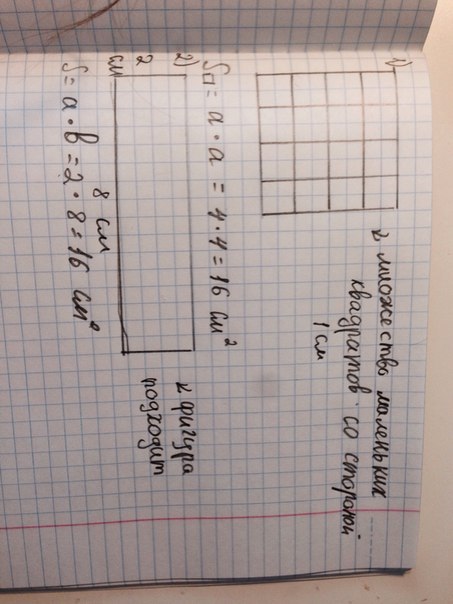 1)
множество маленьких
квадратов со стороной
1 см
S□ = a · a = 4 · 4 = 16 см²
2)
2
см
к фигура
подходит
8 см
S = a · b = 2 · 8 = 16 см²